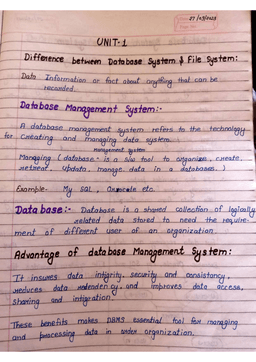 27/03/2023
UNIT-1
Difference between Database System & File System:
Data Information or fact about anything that can be
recorded.
Database Management System:-
A database management system refers to the technology
for creating and managing data system.
management system
Managing (database is a tool to organize, create,
retrieve, Update, manage data in a databases.)
Example- My SQL, etc.
Database:- Database is a shared collection of logically
related data stored to need the require-
ment of different user of an organization.
Advantage of database Management System:
It insures data intigrity, security and consistancy,
reduces data and improves data access,
sharing and intigration.
These benefits makes DBMS essential tool for managing
and processing data in organization.